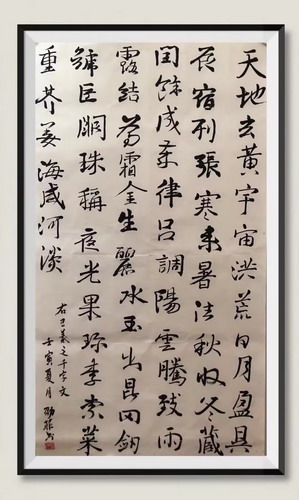 天地玄黃宇宙洪荒日月盈昃
辰宿列張寒來暑往秋收冬藏
閏餘成歲律呂調陽雲騰致雨
露結為霜金生麗水玉出昆岡劍
號巨闕珠稱夜光果珍李柰菜
重芥薑海咸河淡
右王羲之千字文
壬寅夏月